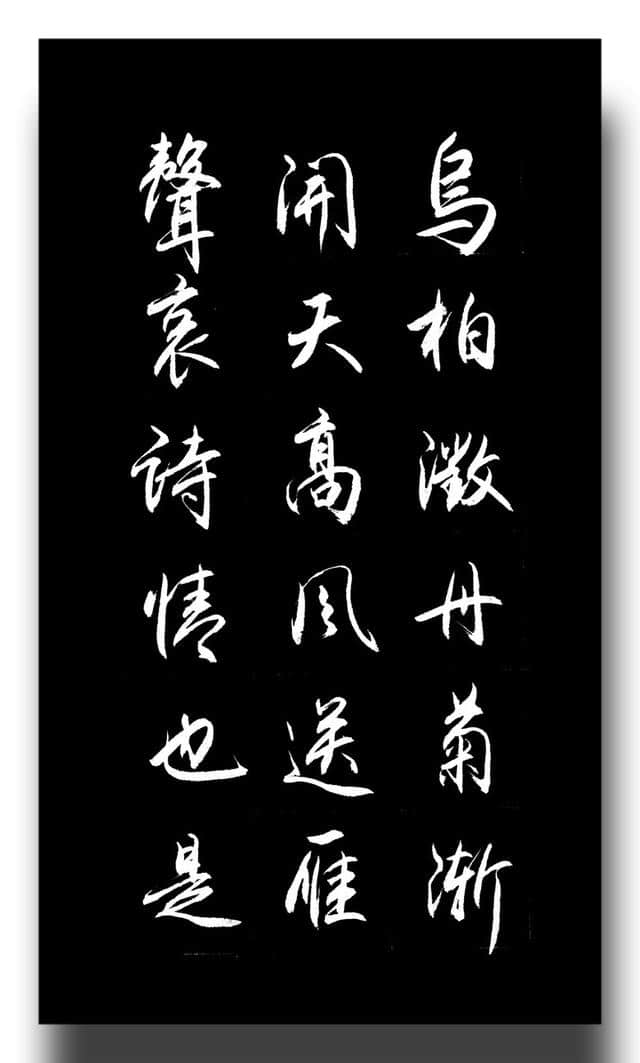 烏桕澂丹菊漸
開天高風送雁
聲哀詩情也是